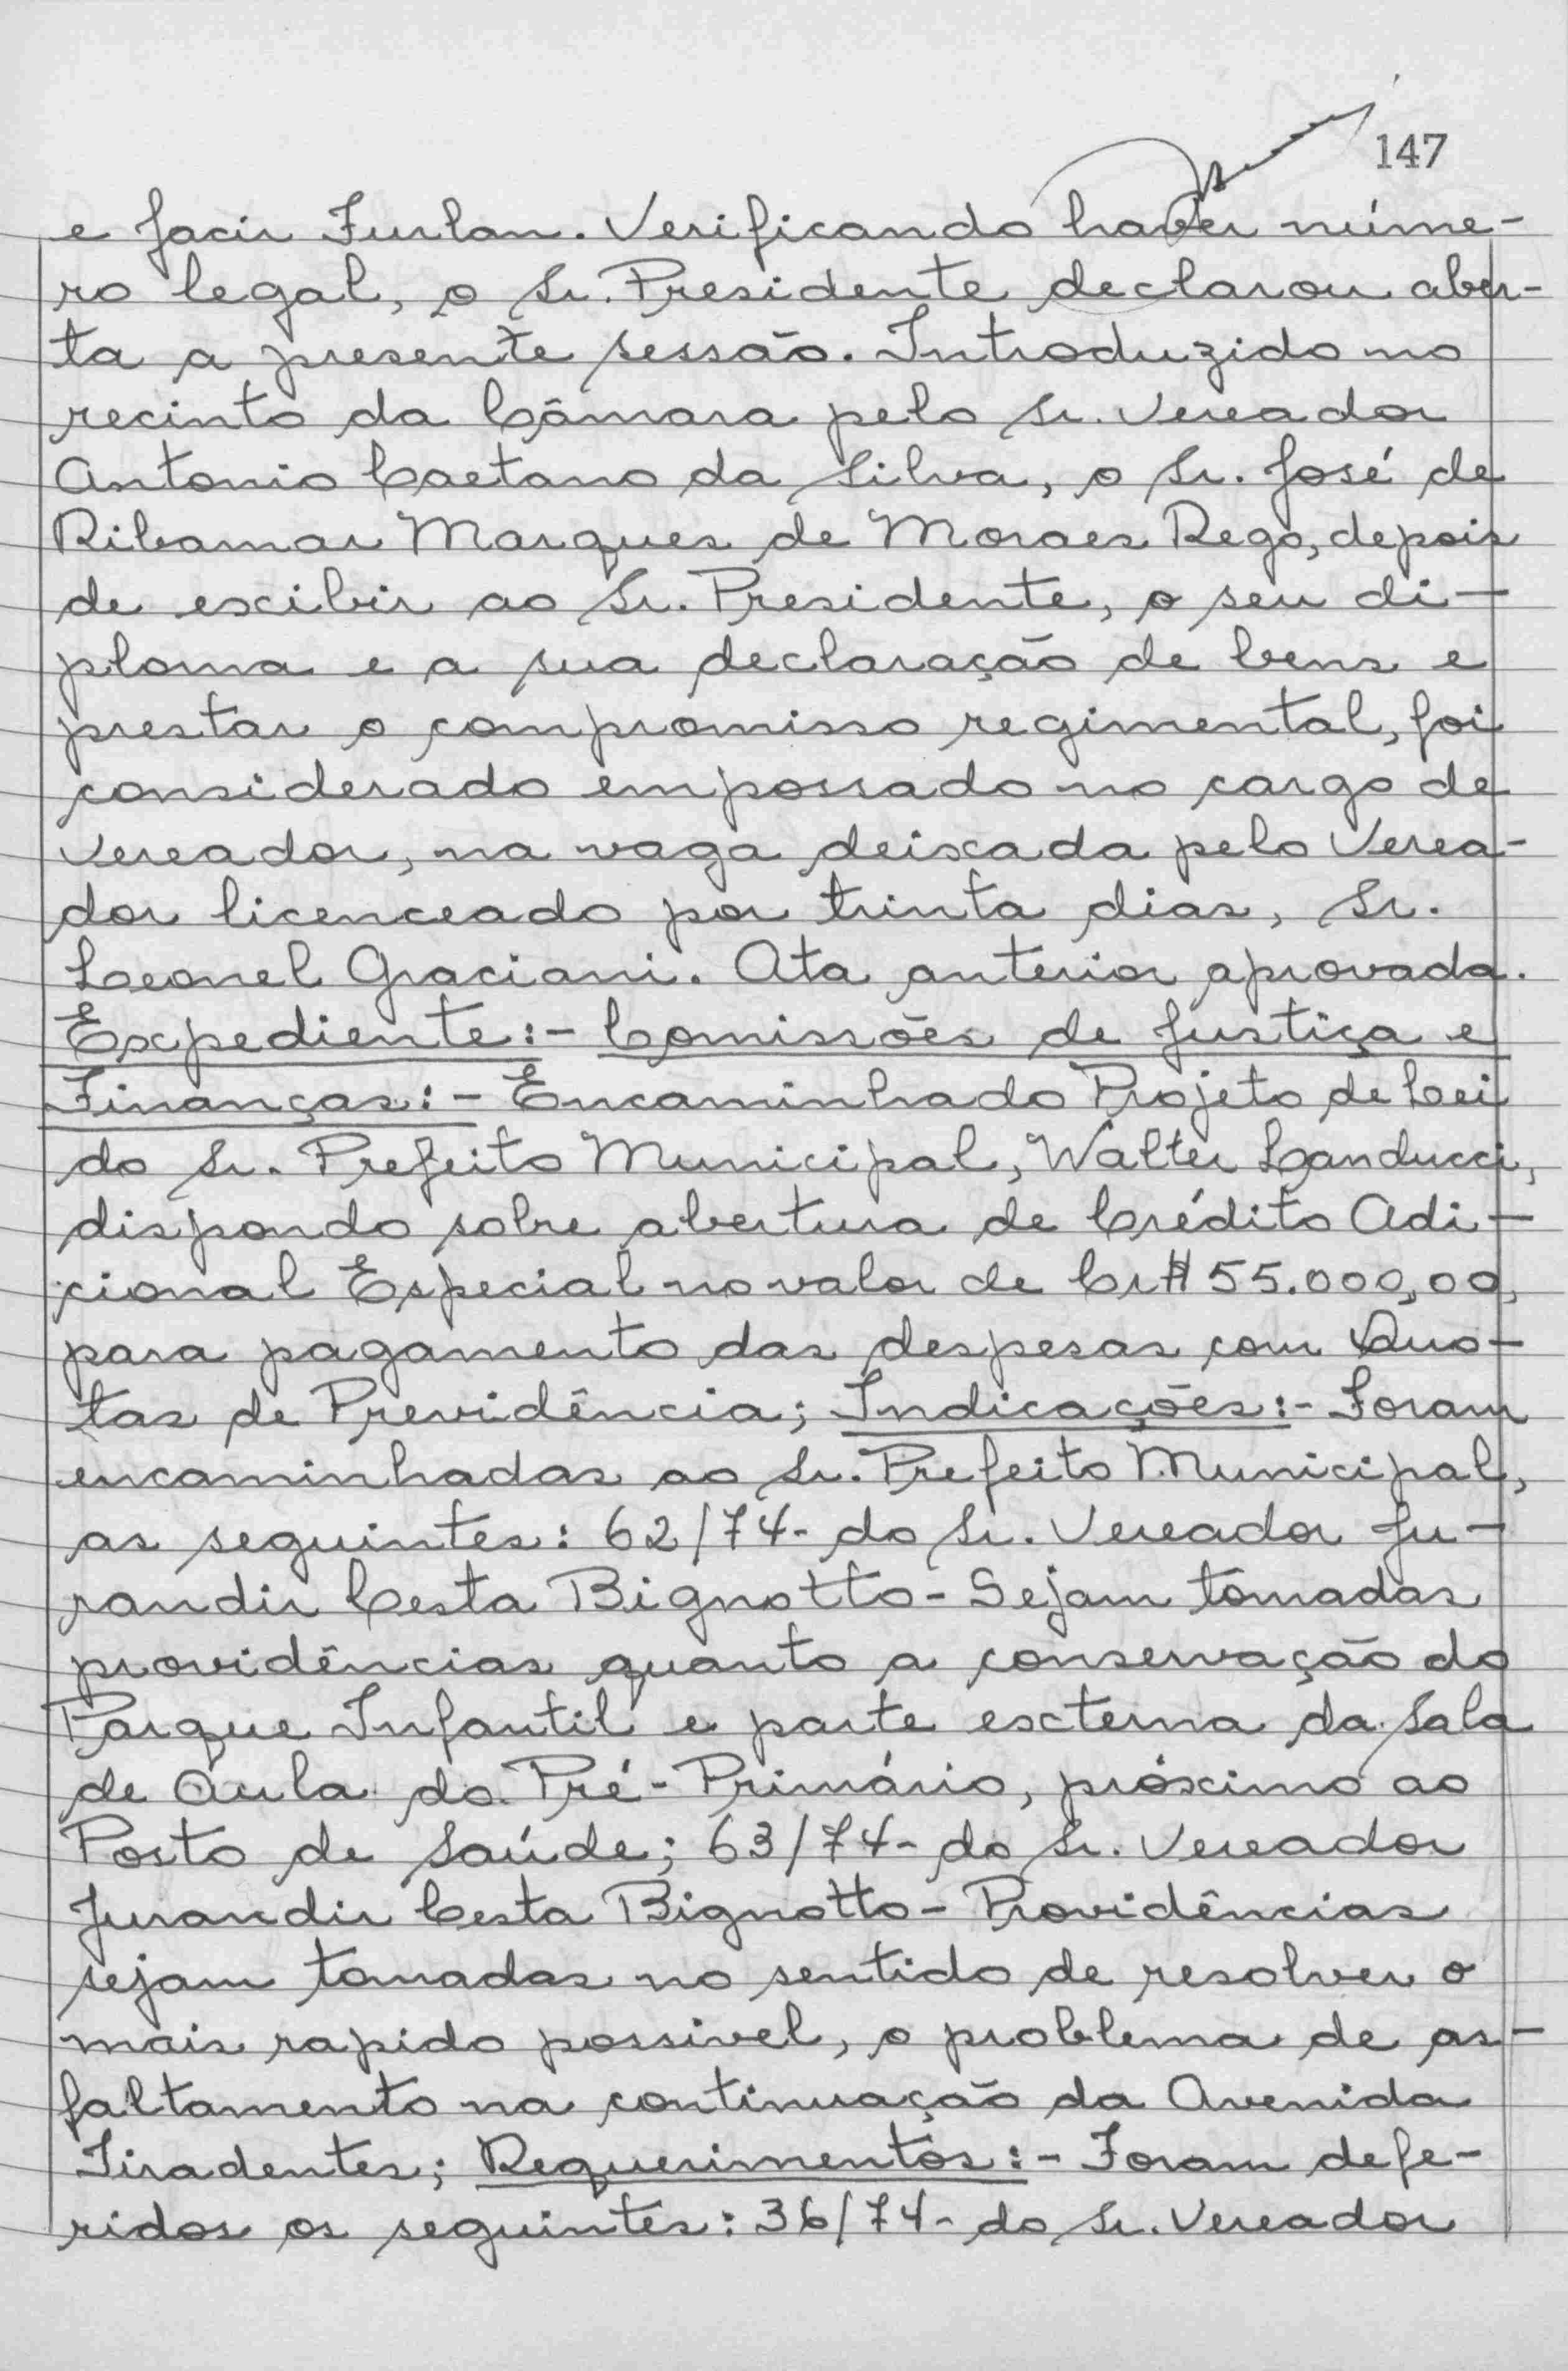 147
e Jacir Furlan. Verificando haver núme-
ro legal, o Sr. Presidente declarou aber-
ta a presente sessão. Introduzido no
recinto da Câmara pelo Sr. Vereador
Antonio Caetano da Silva, o Sr. José de
Ribamar Marques de Moraes Rego, depois
de exibir ao Sr. Presidente, o seu di-
ploma e a sua declaração de bens e
prestar o compromisso regimental, foi
considerado empossado no cargo de
Vereador, na vaga deixada pelo Verea-
dor licenceado por trinta dias, Sr.
Leonel Graciani. Ata anterior aprovada.
Expediente:- Comissões de Justiça e
Finanças:- Encaminhado Projeto de Lei
do Sr. Prefeito Municipal, Walter Landucci,
dispondo sobre abertura de Crédito Adi-
cional Especial no valor de Cr$ 55.000,00,
para pagamento das despesas com Quo-
tas de Previdência; Indicações:- Foram
encaminhadas ao Sr. Prefeito Municipal,
as seguintes: 62/74- do Sr. Vereador Ju-
randir Cesta Bignotto- Sejam tomadas
providências quanto a conservação do
Parque Infantil e parte externa da Sala
de Aula do Pré-Primário, próximo ao
Posto de Saúde; 63/74- do Sr. Vereador
Jurandir Cesta Bignotto- Providências
sejam tomadas no sentido de resolver o
mais rapido possivel, o problema de as-
faltamento na continuação da Avenida
Tiradentes; Requerimentos:- Foram defe-
ridos os seguintes: 36/74- do Sr. Vereador